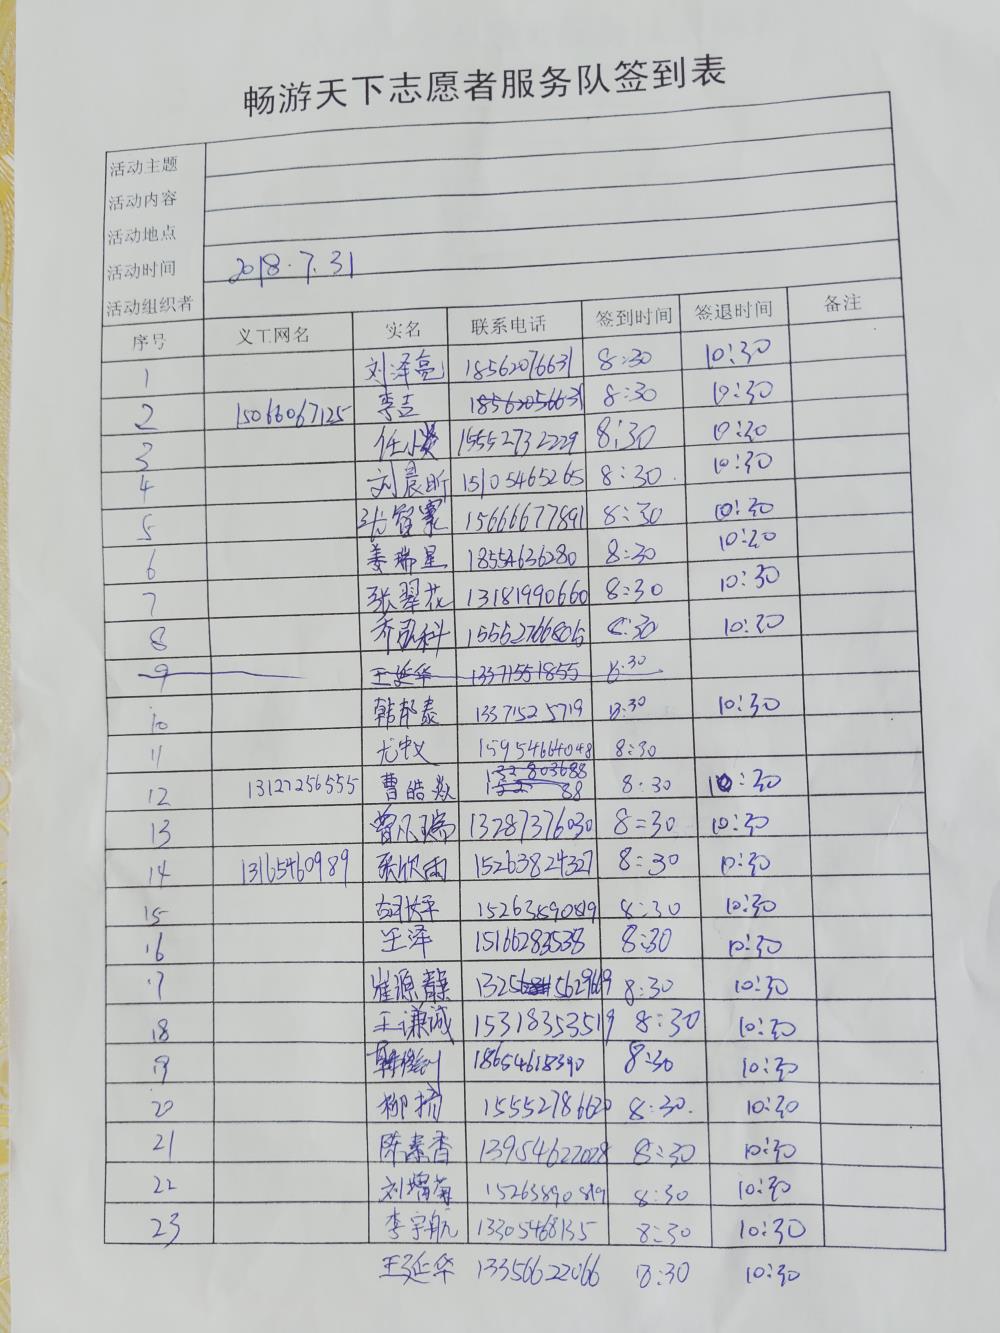 畅游天下志愿者服务队签到表
活动主题
活动内容
活动地点
活动时间 2018.7.31
活动组织者
序号 义工网名 实名 联系电话 签到时间 签退时间 备注
1 刘泽亮 18562076631 8:30 10:30
2 15066067125 李吉 18562056631 8:30 10:30
3 任小 15552732229 8:30 10:30
4 刘晨昕 15105465265 8:30 10:30
5 张 15666677891 8:30 10:30
6 姜瑞星 18554636280 8:30 10:20
7 张翠花 13181990660 8:30 10:30
8 乔 科 15552766806 8:30 10:30
9 王延华 13371551855 8:30
10 韩邦泰 13371525719 8:30 10:30
11 尤 15954664048 8:30
12 13127256555 曹皓焱 8:30 10:30
13 曾凡瑞 13287376030 8:30 10:30
14 13165460989 张欣雨 15263824327 8:30 10:30
15 胡长平 15263890819 8:30 10:30
16 王泽 15166283538 8:30 10:30
17 崔源静 8:30 10:30
18 王谦诚 15318353519 8:30 10:30
19 韩 18654618390 8:30 10:30
20 柳 15552786620 8:30. 10:30
21 陈素香 13954622028 8:30 10:30
22 刘增菊 15263890819 8:30 10:30
23 李宇航 13305468135 8:30 10:30
王延华 13356622066 8:30 10:30